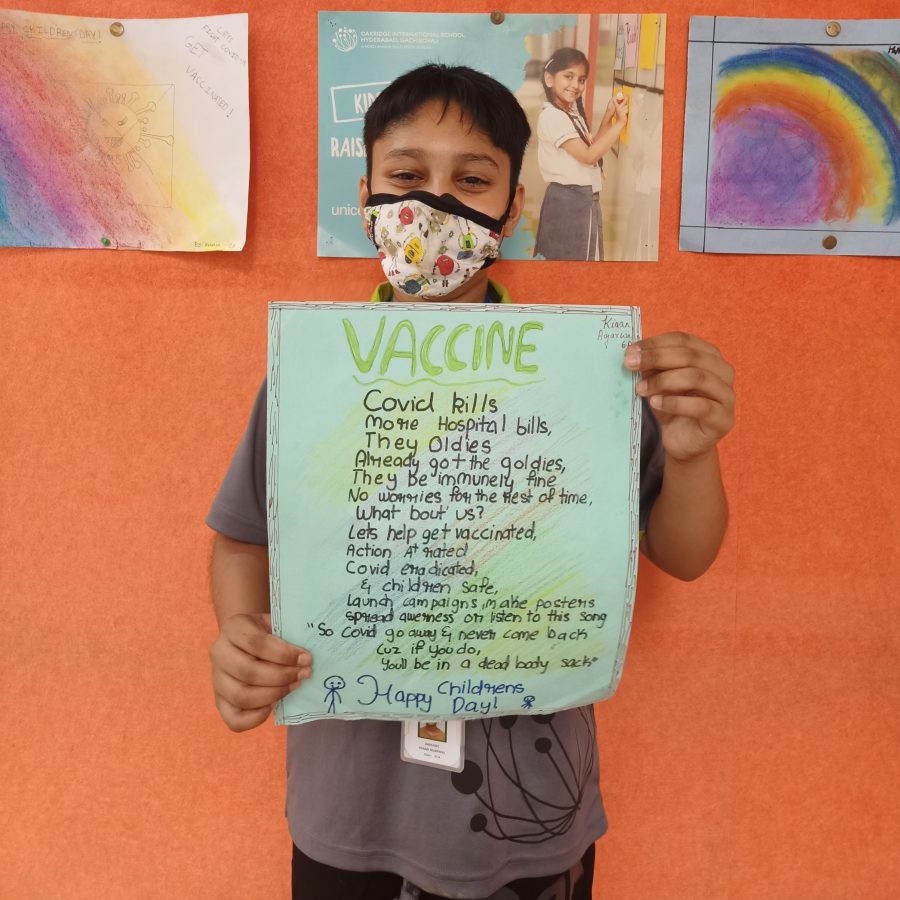 PPY CHILDRENS DAY!
LETS
FIGHT CORONA
GET
VACCINATED!
OAKRIDGE INTERNATIONAL SCHOOL
HYDERABAD, GACHIBOWLI
KIN
RAIS
unic
VACCINE
Kiaan
Agarwal
Covid kills
More Hospital bills,
They Oldies
Already got the goldies,
They be immunely fine
No worries for the rest of time,
What bout' us?
Lets help get vaccinated,
Action At rated
Covid eradicated,
& children safe,
Launch campaigns, make posters
spread awerness or listen to this song
"So Covid go away & never come back
Cuz if you do,
You'll be in a dead body sack"
Happy Childrens
Day!